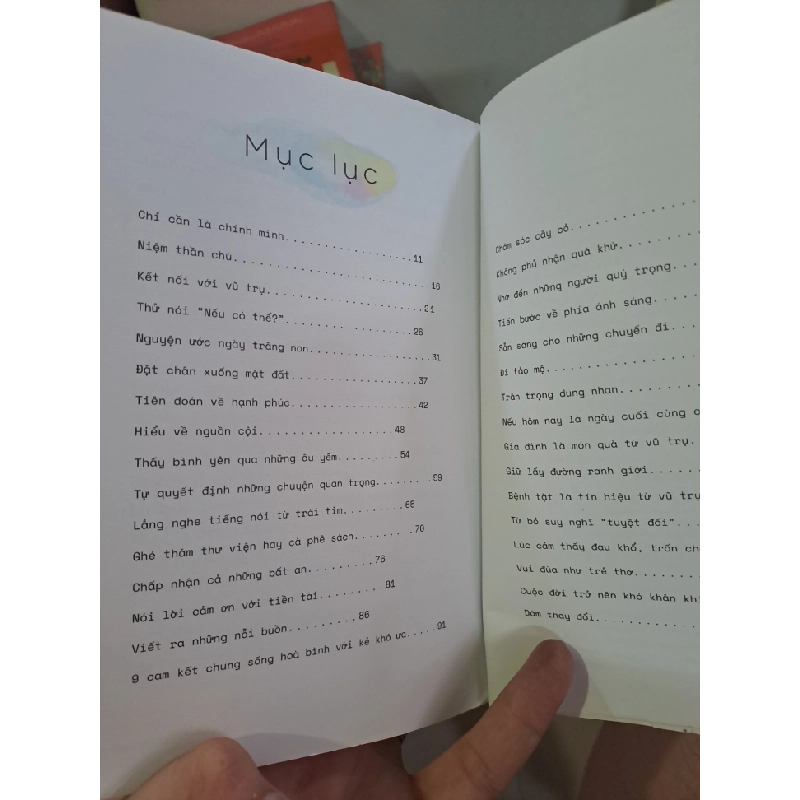 Mục lục
Chỉ cần là chính mình..................11
Niệm thần chú............................16
Kết nối với vũ trụ......................21
Thử nói "Nếu có thể?"..................26
Nguyện ước ngày trăng non.................31
Đặt chân xuống mặt đất..................37
Tiên đoán về hạnh phúc..................42
Hiểu về nguồn cội...................48
Thấy bình yên qua những âu yếm.........54
Tự quyết định những chuyện quan trọng........59
Lắng nghe tiếng nói từ trái tim.........66
Ghé thăm thư viện hay cà phê sách........70
Chấp nhận cả những bất an.........76
Nói lời cảm ơn với tiền tài........81
Viết ra những nỗi buồn.........86
9 cam kết chung sống hoà bình với kẻ khó ưa.....91
Chăm sóc cây cỏ..................
Không phủ nhận quá khứ............
đến những người quý trọng....
Tiến bước về phía ánh sáng.......
Sẵn sàng cho những chuyến đi....
Đi tảo mộ......................
Trân trọng dung nhan...........
Nếu hôm nay là ngày cuối cùng
Gia đình là món quà từ vũ trụ.
Giữ lấy đường ranh giới.......
Bệnh tật là tín hiệu từ vũ trụ
Từ bỏ suy nghĩ "tuyệt đối"...
Lúc cảm thấy đau khổ, trốn
Vui đùa như trẻ thơ.........
Cuộc đời trở nên khó khăn
Dám thay đổi...............